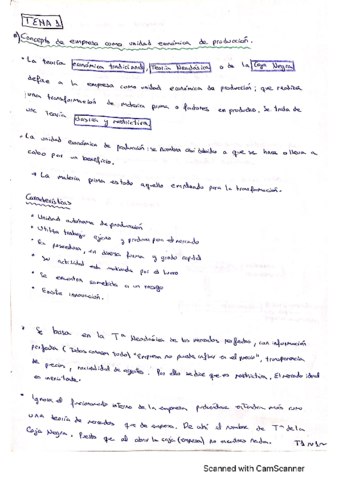 TEMA 1
Concepto de empresa como unidad económica de producción.
• La teoría económica tradicional, Teoría Neoclásica o de la Caja Negra
define a la empresa como unidad económica de producción; que realiza
una transformación de materia prima o factores en productos. Se trata de
una teoría clásica y restrictiva
• La unidad económica de producción: se nombra así debido a que se hace o lleva a
cabo por un beneficio.
→ La materia prima es todo aquello empleado para la transformación.
Características
• Unidad autónoma de producción
• Utiliza trabajo ajeno y produce para el mercado
• En poseedora, en diversa forma y grado capital
• Su actividad está motivada por el lucro
• Se encuentra sometida a un riesgo
• Existe innovación.
• Se basa en la Tª Neoclásica de los mercados perfectos, con información
perfecta ( todos conocen todo) "Empresa no puede influir en el precio", transparencia
de precios, racionalidad de agentes. Por ello se dice que es restrictiva. El mercado ideal
es inexistente.
• Ignora el funcionamiento interno de la empresa, pudiéndose entender más como
una teoría de mercados que de empresa. De ahí el nombre de Tª de la
Caja Negra. Puesto que al abrir la caja (empresa) no vemos nada.
T1 ~1~
Scanned with CamScanner